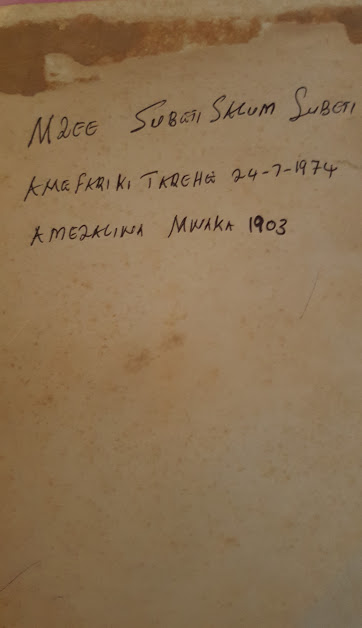 MZEE SUBETI SALUM SUBETI
AMEFARIKI TAREHE 24-7-1974
AMEZALIWA MWAKA 1903